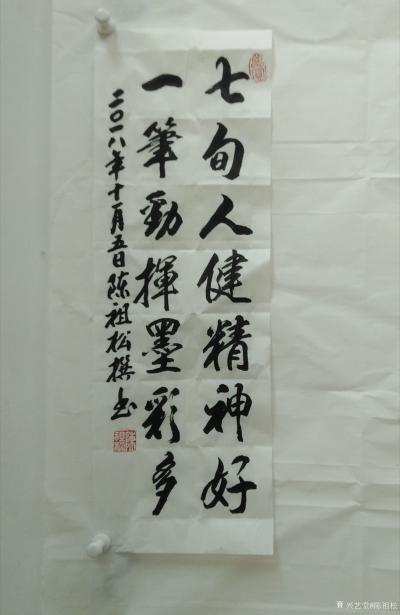 七旬人健精神好
一筆勁揮墨彩多
二〇一八年十一月五日陈祖松撰书
兴艺堂@陈祖松